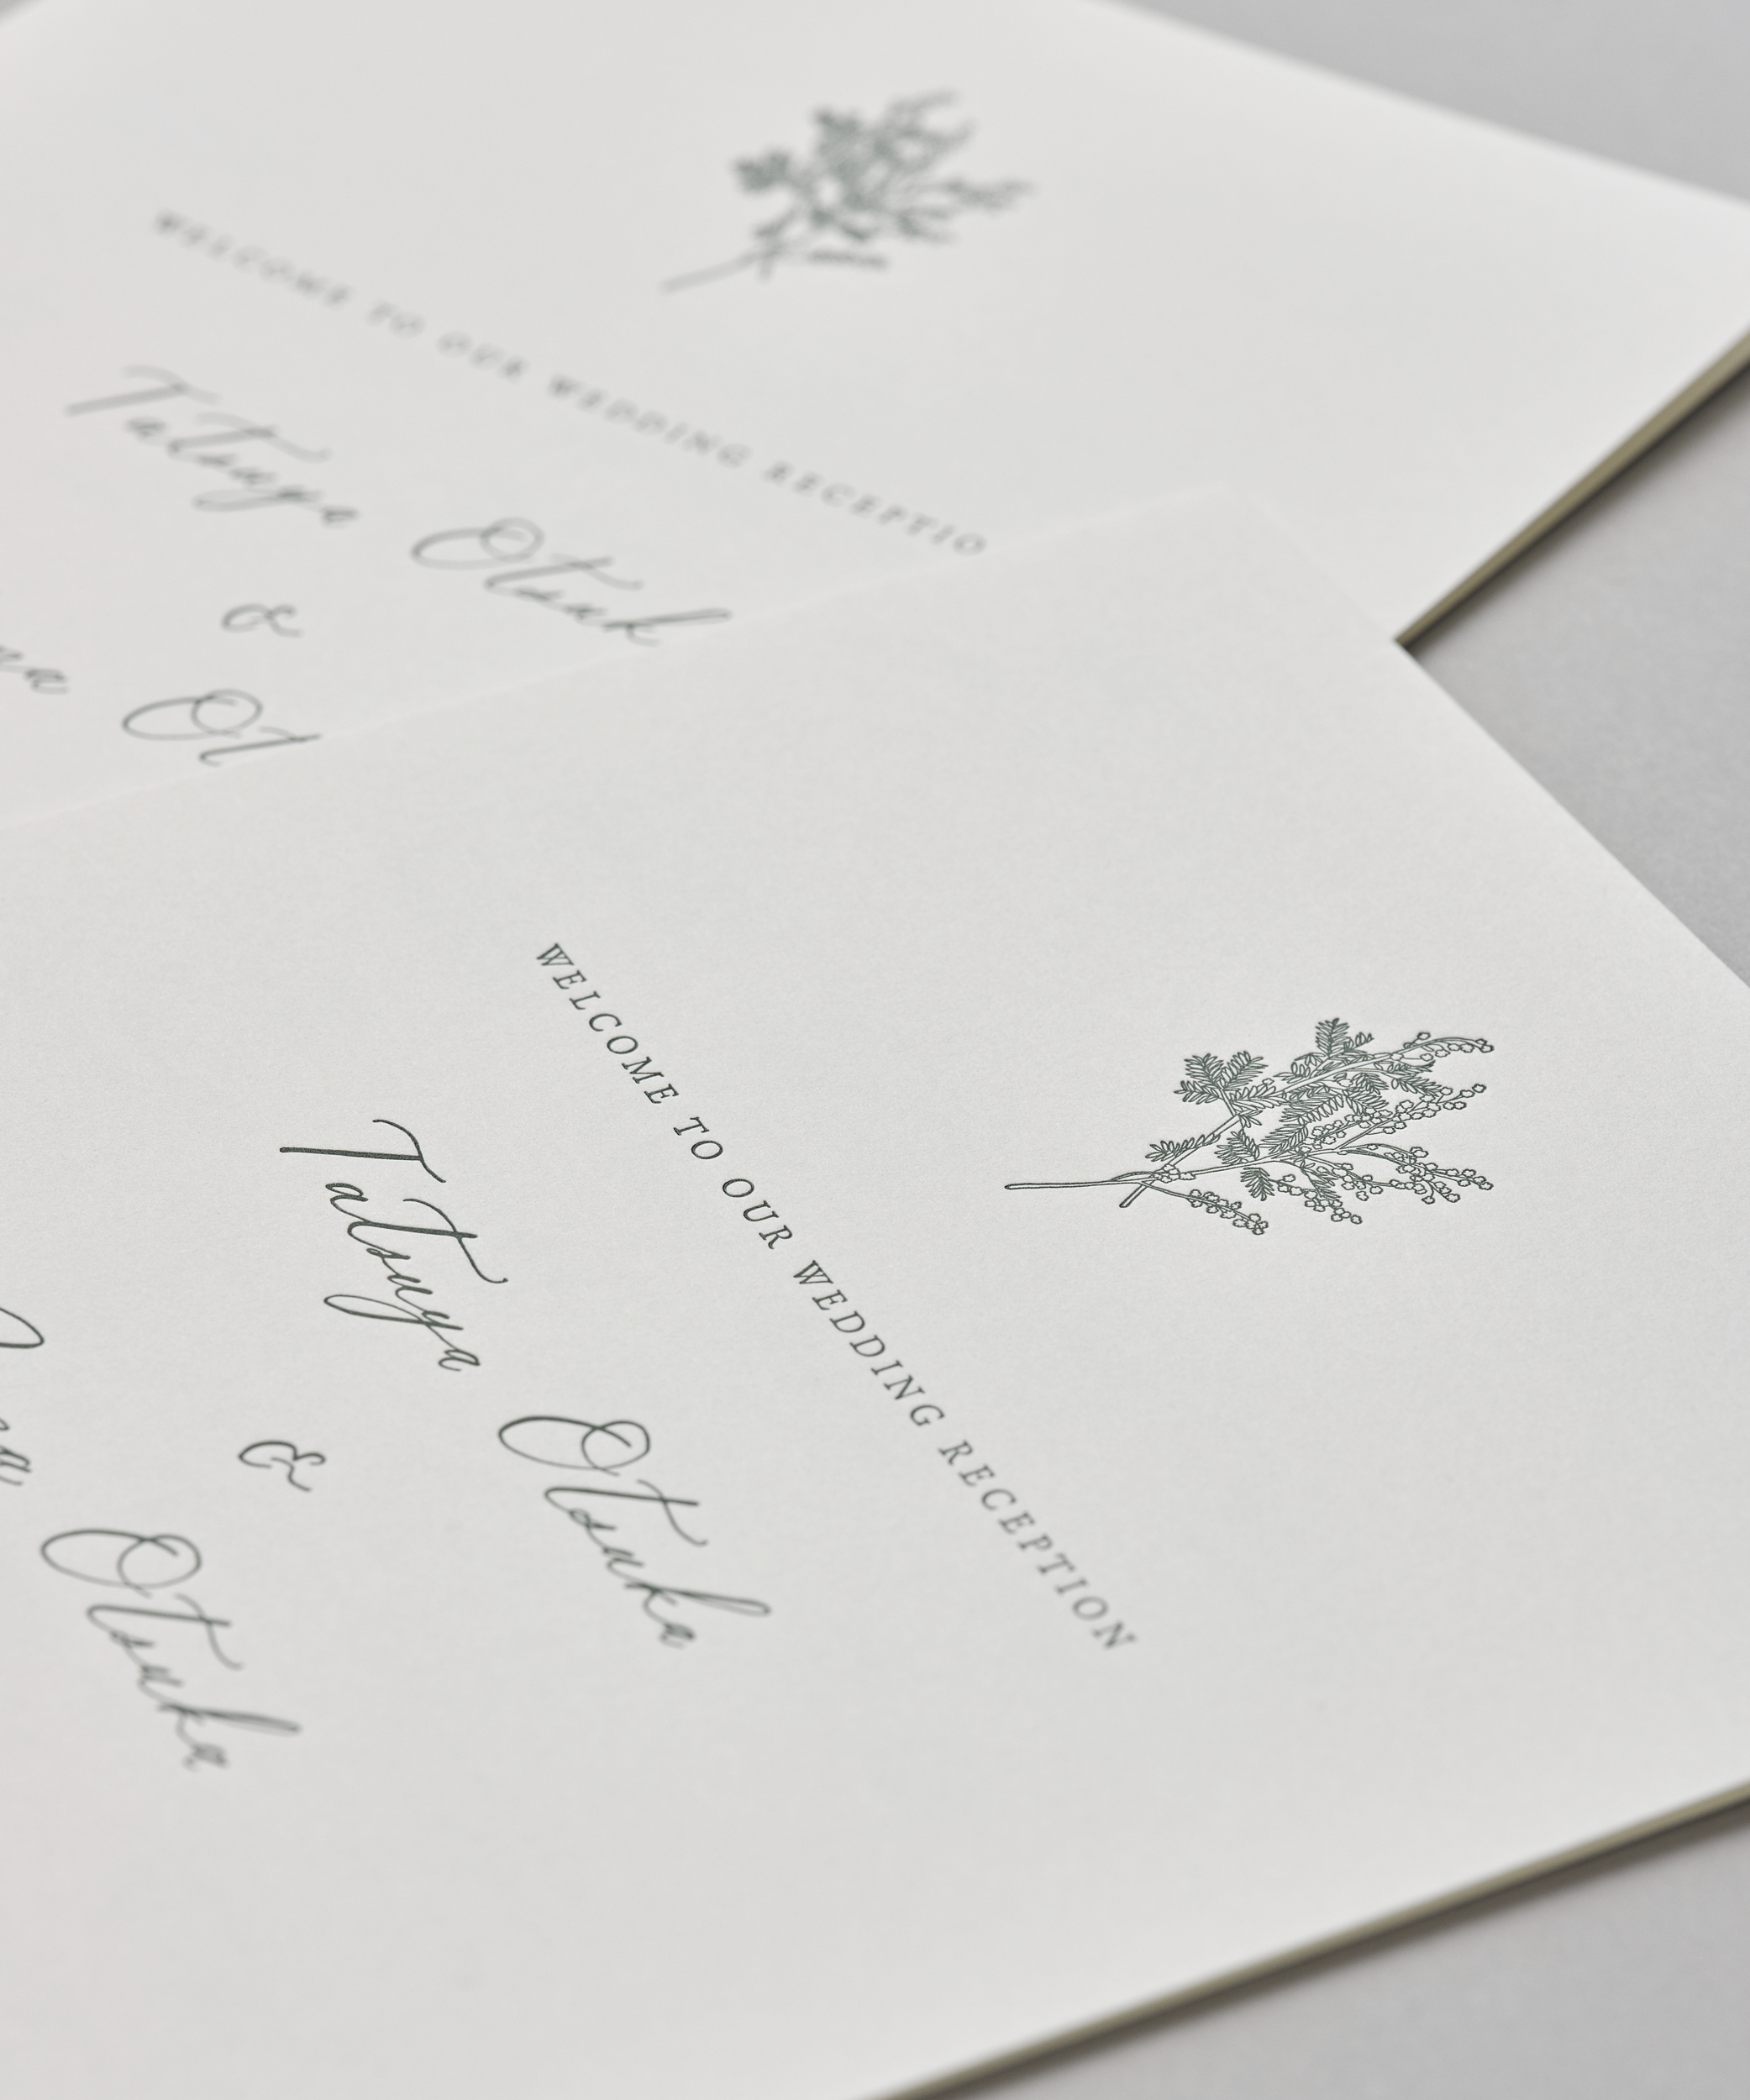 WELCOME TO OUR WEDDING RECEPTIO
Tatsuya Otsuk
&
na Ot
WELCOME TO OUR WEDDING RECEPTION
Tatsuya Otsuka
&
Otsuka